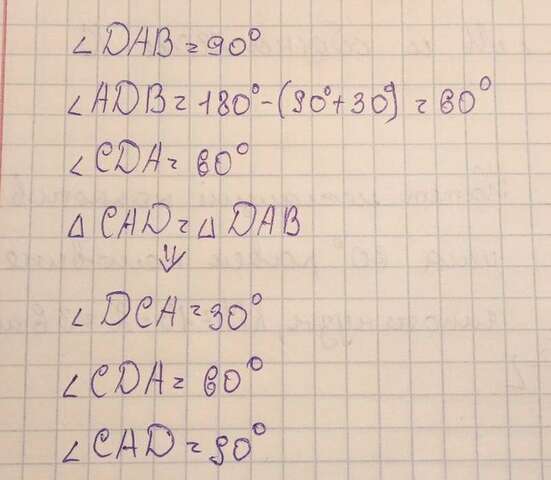 ∠DAB=90°
∠ADB=180°-(90°+30°)=60°
∠CDA=60°
△CAD=△DAB
⇓
∠DCA=30°
∠CDA=60°
∠CAD=90°